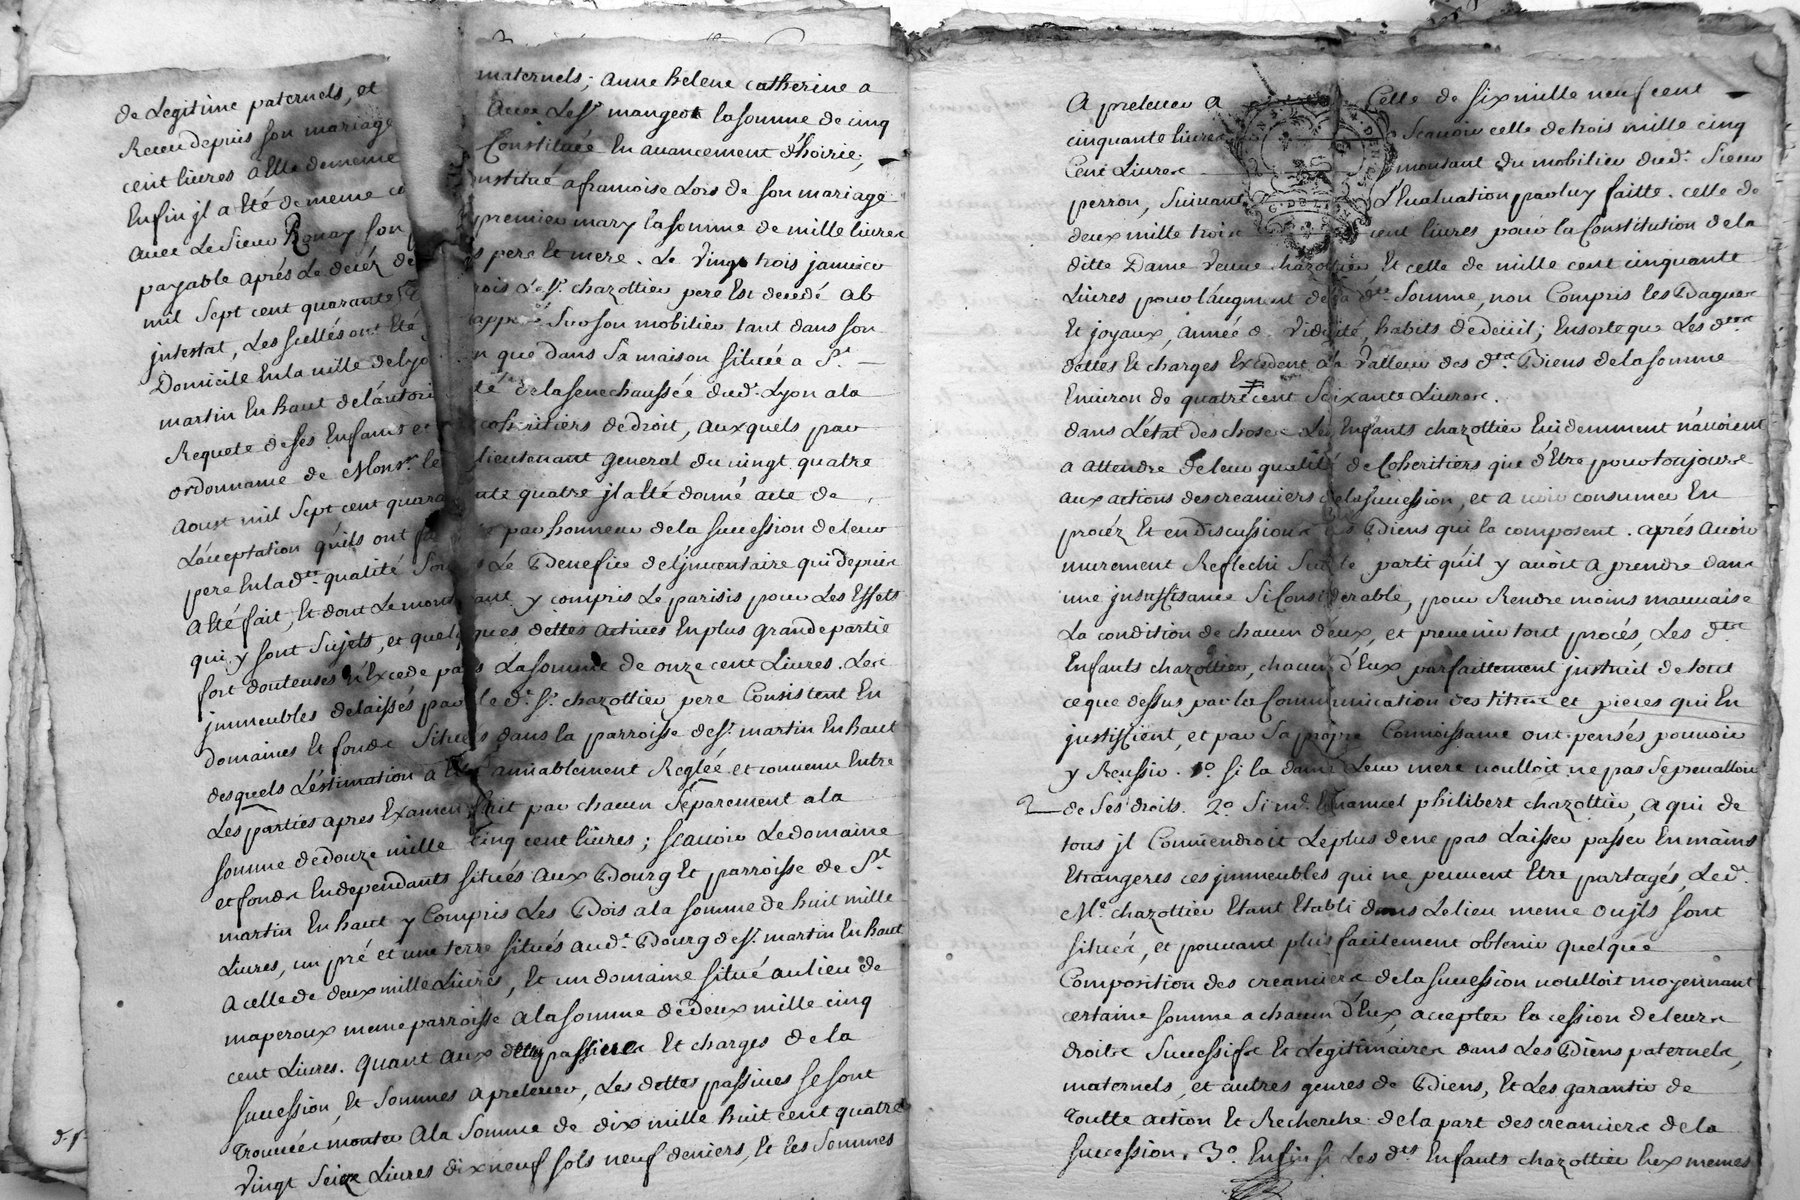 de Legitime paternels, et maternels; anne helene catherine a
Receu depuis son mariage avec Le Sr. mangeot la somme de cinq
cent livres a Elle de meme Constituée En avancement d'hoirie,
Enfin jl a Eté de meme constitué a francoise Lors de son mariage
avec Le Sieur Ronay son premier mary la somme de mille livres
payable aprés Le decéz de ses pere et mere. Le vingt trois janvier
mil Sept cent quarante trois Le Sr. chazottier pere Est decedé ab
jntestat, Les scellés ont Eté appozé Sur son mobilier tant dans son
Domicile En la ville de Lyon que dans Sa maison Située a St.
martin En haut de l'autorité de la senechaussée dud. Lyon a la
Requete de ses Enfants et cohéritiers de droit, auxquels par
ordonnance de Monsr. le lieutenant general du vingt quatre
aoust mil Sept cent quarante quatre jl a Eté donné acte de
L'acceptation qu'ils ont faite par honneur de la succession de leur
pere En lad.te qualité Sous Le Benefice de L'jnventaire qui depuis
a Eté fait, Et dont Le montant y compris Le parisis pour Les Effets
qui y sont Sujets, et quelques dettes actives En plus grande partie
fort douteuses n'Excede pas La somme de onze cent Livres. Les
jmmeubles delaissés par le d. Sr. chazottier pere Consistent En
domaines Et fonds Situés dans la parroisse de St. martin En haut
desquels L'estimation a Eté amiablement Reglée et convenue Entre
Les parties apres Examen fait par chacun Séparement a la
somme de douze mille cinq cent livres; scavoir Le domaine
et fonds En dependants situés aux Bourg Et parroisse de St.
martin En haut y Compris Les Bois a la somme de huit mille
Livres, un pré et une terre situés aud. Bourg de St. martin En haut
a celle de deux mille Livres, Et un domaine situé au lieu de
maperoux meme parroisse a la somme de deux mille cinq
cent Livres. Quant aux dettes passives Et charges de la
succession, Et sommes a prelever, Les dettes passives se sont
trouvées monter a la somme de dix mille huit cent quatre
vingt Seize Livres dix neuf sols neuf deniers, Et les Sommes
a prelever a Celle de six mille neuf cent
cinquante livres Scavoir celle de trois mille cinq
Cent Livres montant du mobilier dud. Sieur
perron, Suivant l'Evaluation par luy faitte. celle de
deux mille trois cent livres pour la Constitution de la
ditte Dame veuve chazottier Et celle de mille cent cinquante
Livres pour l'augment de la d.te Somme, non Compris les Bagues
Et joyaux, année de viduité, habits de deüil; En sorte que Les d.tes
dettes Et charges Excedent la valleur des d.ts Biens de la somme
Environ de quatre cent Soixante Livres.
dans L'état des choses Les Enfants chazottier Evidemment n'avoient
a attendre de leur qualité de Coheritiers que d'Etre pour toujours
aux actions des creanciers de la succession, et a voir consumer En
procéz Et en discussions les Biens qui la composent. aprés avoir
murement Reflechi Sur le parti qu'il y avoit a prendre dans
une jnsuffisance Si Considerable, pour Rendre moins mauvaise
La condition de chacun d'eux, et prevenir tout procés, Les d.ts
Enfants chazottier, chacun d'Eux parfaittement jnstruit de tout
ce que dessus par la Communication des titres et pieces qui En
justiffient, et par Sa propre Connoissance ont pensés pouvoir
y Reussir. 1o. si la dame Leur mere voulloit ne pas se prevalloir
de Ses droits. 2o. Si md. Emanuel philibert chazottier, a qui de
tous jl Conviendroit Le plus de ne pas Laisser passer En mains
Etrangeres ces jmmeubles qui ne peuvent Etre partagés, Led.
Me. chazottier Etant Etabli dans Le lieu meme ou jls sont
situés, et pouvant plus facilement obtenir quelque
Composition des creanciers de la succession voulloit moyennant
certaine somme a chacun d'Eux, accepter la cession de leurs
droits Successifs Et Legitimaires dans Les Biens paternels,
maternels, et autres genres de Biens, Et Les garantir de
toutte action Et Recherche de la part des creanciers de la
succession. 3o. Enfin si Les d.ts Enfants chazottier Eux memes